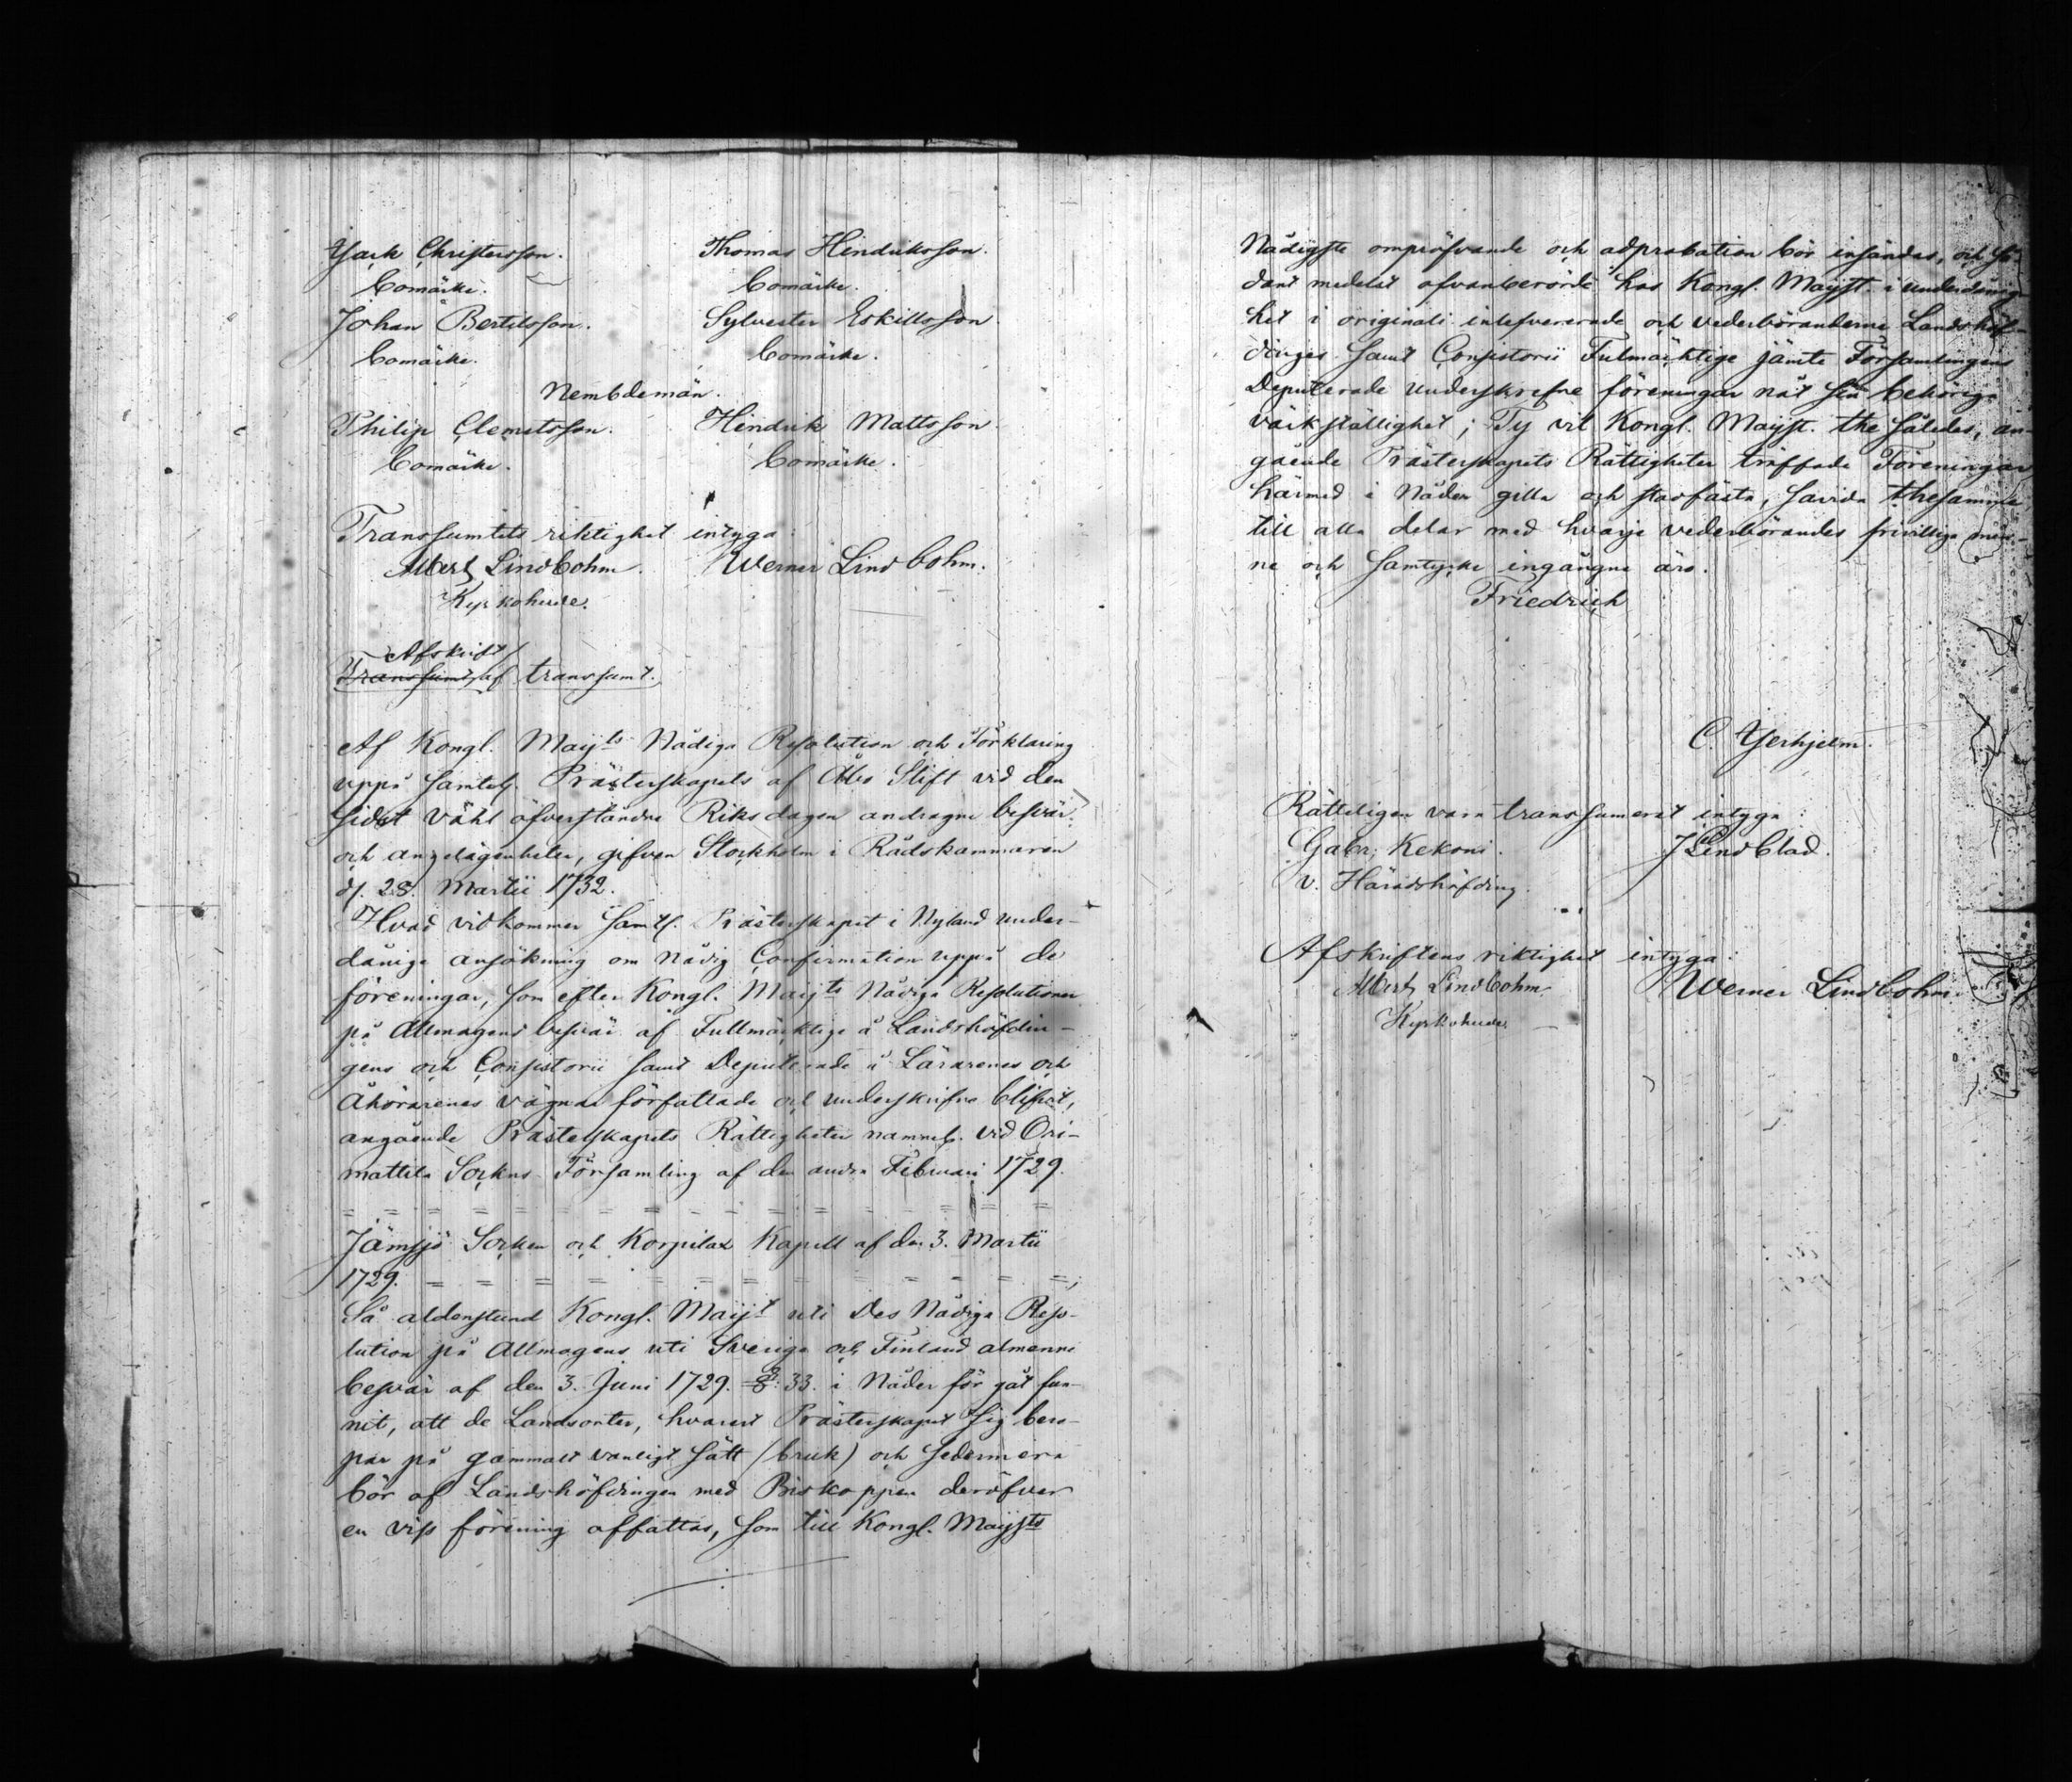 Christersson. Thomas Hindriksson.
bomärke. bomärke.
Johan Bertilsson. Sylvester Eskillsson
bomärke. bomärke.
Nembdemän.
Philip Clemetsson. Hindrik Mattsson.
bomärke. bomärke.
Transsumtets riktighet intyga:
Albert Lindbohm. Werner Lindbohm.
Kyrkoherde.
Afskrift
Transsumt af transsumt.
Af Kongl. Maijts Nådiga Resolution och Förklaring
uppå samtel. Prästerskapets af Åbo Stift vid den
sidst vähl öfverståndne Riksdagen andragne besvär
och angelägenheter, gifven Stockholm i Rådskammaren
d. 28. Martii 1732.
Hvad vidkommer samtl. Prästerskapet i Nyland under-
dånige ansökning om nådig Confirmation uppå de
föreningar, som efter Kongl. Maijts Nådiga Resolutioner
på Allmogens besvär af Fullmäktige å Landshöfdin-
gens och Consistorii samt Deputerade å Lärarenes och
Åhörarenes vägnar författade och underskrifne blifvit,
angående Prästerskapets Rättigheter nammel. vid Ori-
mattila Sockns Församling af den andra Februari 1729.
= = = = = = = = = = = = = =
Jämsjö Socken och Korpilax Kapell af den 3. Martii
1729. = = = = = = = = = = = = =;
Så aldenstund Kongl. Maijt uti Des Nådiga Reso-
lution på Allmogens uti Sverige och Finland almenne
besvär af den 3. Juni 1729. §: 33. i Nåder för gåt fun-
nit, att de Landsorter, hvarest Prästerskapet sig bero-
par på gammalt vanligt sätt (bruk) och sedermera
bör af Landshöfdingen med Biskoppen deröfver
en viss förening affattas, som till Kongl. Maijsts
Nådigste ompröfvande och adprobation bör insändas, och så-
dant medelst ofvanberörde hos Kongl. Mayst. i underdånig-
het i originali inlefvererade och vederböranderne Landshöf-
dinges samt Consistorii Fulmäktige jämte Församlingens
Deputerade underskrefne föreningar nåt sin behörige
värkställighet; Ty vil Kongl. Mayst. the således, an-
gående Prästerskapets Rättigheter träffade Föreningar
härmed i Nåder gilla och stadfästa, savida thesamma
till alla delar med hvarje vederbörandes frivillige min-
ne och samtycke ingångne äro.
Friedrich
C. Gerhjelm.
Rätteligen vara transsumerat intyga:
Gabr. Kekoni. J Lindblad.
v. Häradshöfding.
Afskriftens riktighet intyga:
Albert Lindbohm. Werner Lindbohm.
Kyrkoherde.